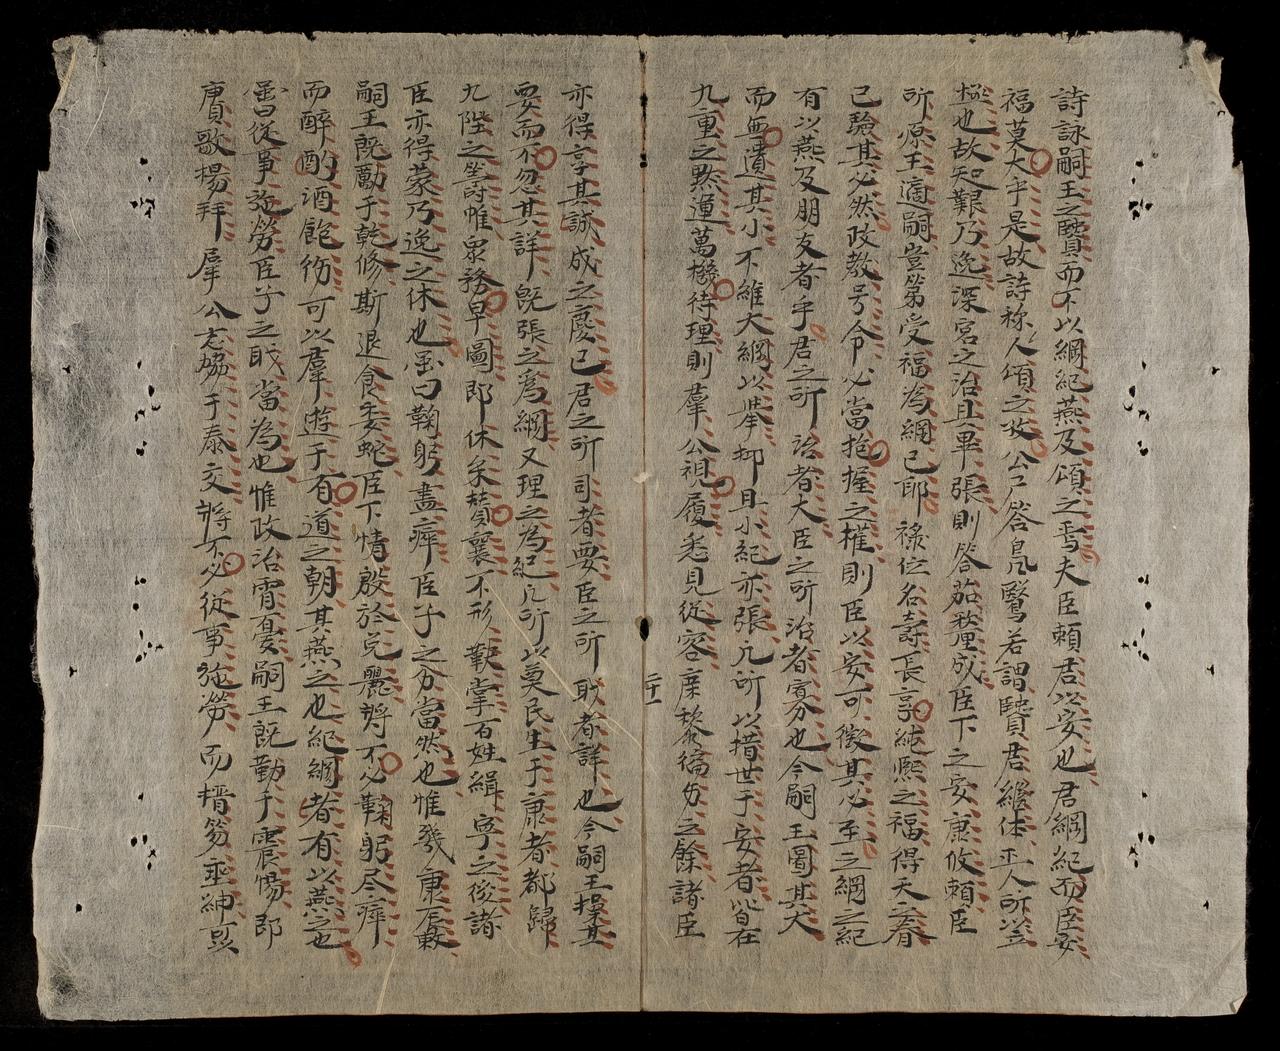 詩詠嗣王之賢而不以綱紀燕及頌之焉夫臣賴君以安也君綱紀而臣安
福莫大乎是故詩人頌之公答若謂賢君繼体正人所
極也故知艱乃逸深宮之治且畢張則答成臣下之安康攸賴臣
所原王適嗣豈第受福為綱已耶祿位名壽長享純熙之福得天之眷
已驗其必然政教号令必當抱握之權則臣以安可徵其心至之綱之紀
有以燕及朋友者乎君之所治者大臣之所治者寡分也今嗣王圖其大
而無遺其小不維大綱以舉抑且小紀亦張凡所以措世于安者皆在
九重之默運萬機待理則羣公視履悉見從容庶黎之餘諸臣
二十一
亦得享其誠成之慶已君之所司者要臣之所耿者詳也今嗣王操其
要而不忽其詳既張之為綱又理之為紀凡所以奠民生于康者都歸
九陛之籌惟衆務早圖即休矣贊襄不形鞅掌百姓緝寧之後諸
臣亦得蒙乃逸之休也虽曰鞠躬盡瘁臣子之分當然也惟幾康
嗣王既勵于乾修斯退食委蛇臣下情殷於兌麗將不必鞠躬尽瘁
而醉酌酒飽可以羣遊于有道之朝其燕之也紀綱者有以燕之也
虽曰從事勞臣子之職當為也惟政治宵憂嗣王既勤于震惕即
賡歌揚拜羣公志協于泰交將不必從事勞而搢笏垂紳